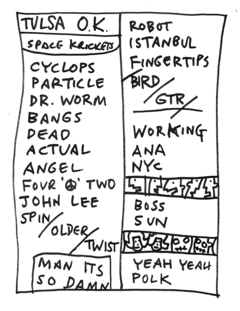 TULSA O.K.
SPACE KRICKETS
CYCLOPS
PARTICLE
DR. WORM
BANGS
DEAD
ACTUAL
ANGEL
FOUR "O" TWO
JOHN LEE
SPIN/
OLDER/
TWIST
MAN ITS
SO DAMN
ROBOT
ISTANBUL
FINGERTIPS
BIRD/
GTR/
WORKING
ANA
NYC
BOSS
SUN
YEAH YEAH
POLK